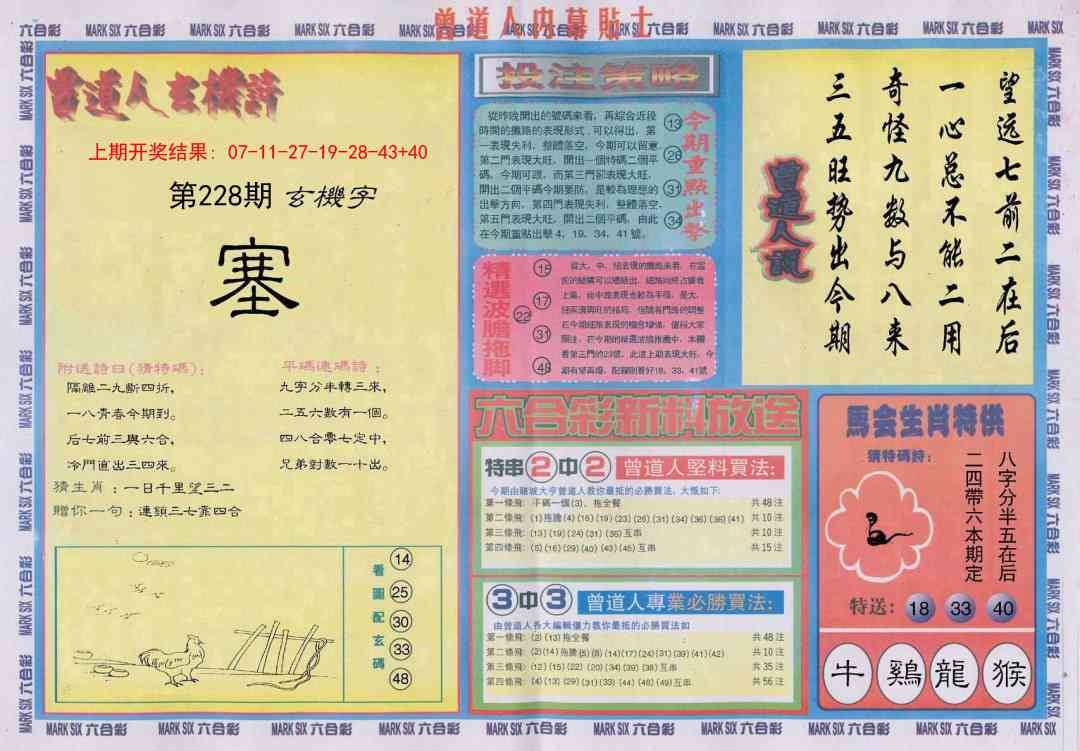 曾道人内幕貼士
曾道人玄機詩
上期开奖结果: 07-11-27-19-28-43+40
第228期 玄機字
塞
附送詩曰(猜特碼):
隔離二九斷四折,
一八青春今期到。
后七前三與六合,
冷門直出三四來。
平碼連碼詩:
九字分半轉三來,
二五六數有一個。
四八合零七定中,
兄弟對數一十出。
猜生肖:一日千里望三二
贈你一句:連鎖三七靠四合
看圖配玄碼
14
25
30
33
48
投注策略
從昨晚開出的號碼來看,再綜合近段
時間的攤路的表現形式,可以得出,第
一表現失利,整體落空,今期可以留意,
第二門表現大旺,開出一個特碼二個平
碼,今期可跟,而第三門卻表現大旺,
開出二個平碼今期要防,是較為理想的
出擊方向,第四門表現失利,整體落空,
第五門表現大旺,開出二個平碼,由此
在今期重點出擊4、19、34、41號。
13
26
31
34
今期重點出擊
精選波膽拖脚
18
17
22
31
48
六合彩新料放送
特串2中2 曾道人堅料買法:
今期由賭城大亨曾道人教你最抵的必勝買法,大慨如下:
第一條飛: 平碼一個(3), 拖全餐 共48注
第二條飛: (1)拖膽(4)(16)(19)(23)(26)(31)(34)(36)(38)(41) 共10注
第三條飛: (13)(19)(24)(31)(35)互串 共10注
第四條飛: (5)(16)(29)(40)(43)(45)互串 共15注
3中3 曾道人專業必勝買法:
由曾道人各大編輯傾力教你最抵的必勝買法如
第一條飛: (2)(13)拖全餐 共48注
第二條飛: (2)(14)拖膽(5)(8)(14)(17)(24)(31)(39)(41)(42) 共10注
第三條飛: (12)(15)(22)(20)(34)(39)(38)互串 共35注
第四條飛: (4)(13)(29)(31)(33)(44)(48)(49)互串 共56注
曾道人說
望远七前二在后
一心总不能二用
奇怪九数与八来
三五旺势出今期
馬会生肖特供
猜特碼詩:
八字分半五在后
二四帶六本期定
特送: 18 33 40
牛 鷄 龍 猴
MARK SIX 六合彩